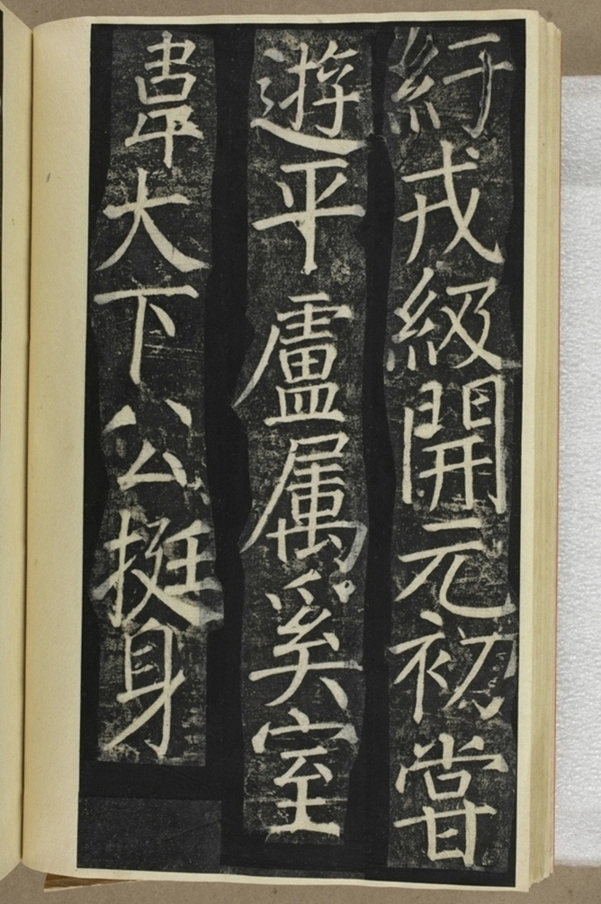 紆戎級開元初甞
遊平盧属奚室
韋大下公挺身